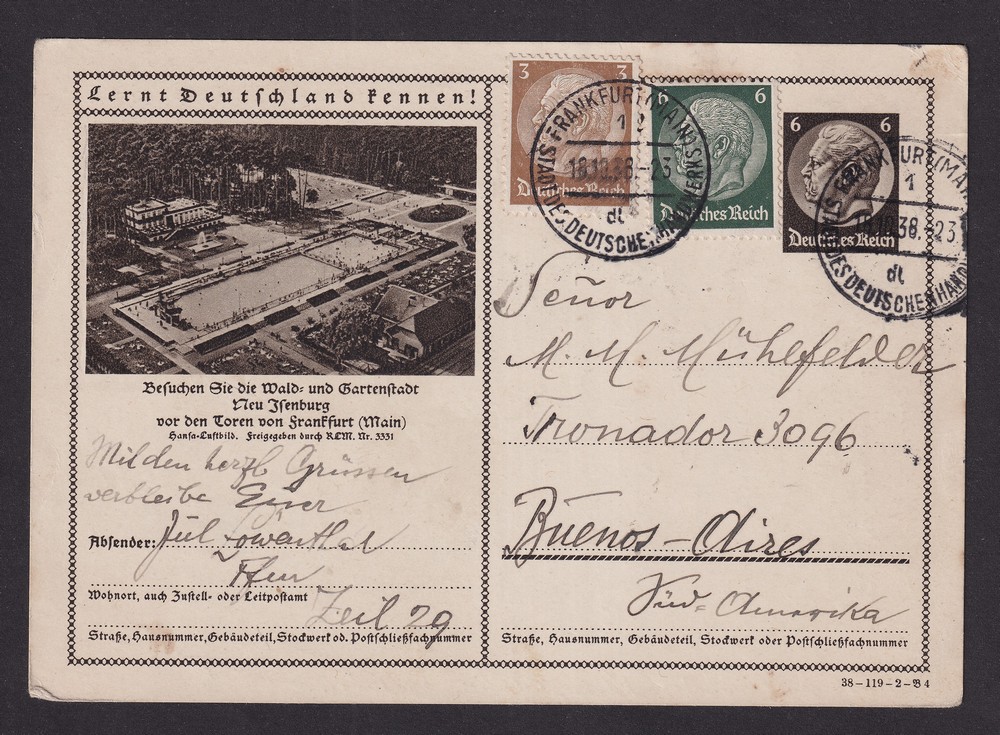 Lernt Deutschland kennen!
3 3
Deutsches Reich
6 6
Deutsches Reich
6 6
Deutsches Reich
FRANKFURT (MAIN)
1
18.10.38.-23
dt
STADT DES DEUTSCHEN HANDWERKS
FRANKFURT (MAIN)
1
18.10.38.-23
dt
STADT DES DEUTSCHEN HANDWERKS
Besuchen Sie die Wald- und Gartenstadt
Neu Isenburg
vor den Toren von Frankfurt (Main)
Hansa-Luftbild. Freigegeben durch RLM. Nr. 3331
Mit den herzl Grüssen
verbleibe Euer
Absender: Jul Löwenthal
Ffm
Wohnort, auch Zustell- oder Leitpostamt
Zeil 29
Straße, Hausnummer, Gebäudeteil, Stockwerk od. Postschließfachnummer
Señor
M. M. Mühlfelder
Tronador 3096
Buenos-Aires
Süd-Amerika
Straße, Hausnummer, Gebäudeteil, Stockwerk oder Postschließfachnummer
38-119-2-B4